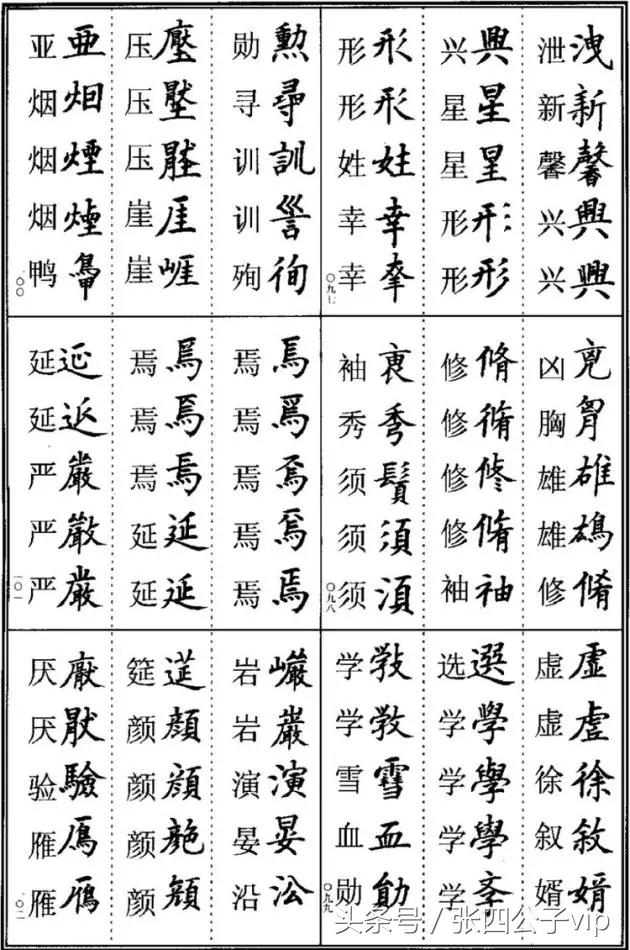 泄洩 新新 馨馨 兴興 兴興
兴興 星星 星星 形形 形形
形形 形形 姓姓 幸幸 幸
〇九七
凶兇 胸胷 雄雄 雄鴆 修脩
修脩 修脩 修修 修脩 袖袖
袖裒 秀秀 须鬚 须須 须湏
〇九八
虚虚 虚虗 徐徐 叙敘 婿婿
选選 学學 学學 学學 学斈
学 学 雪雪 血血 勋勛
〇九九
勋勳 寻尋 训訓 训 殉徇
压壓 压 压 崖厓 崖崕
亚亞 烟烟 烟煙 烟煙 鸭鴨
一〇〇
焉焉 焉焉 焉焉 焉焉 焉焉
焉焉 焉焉 焉焉 延延 延延
延延 延 严嚴 严嚴 严嚴
一〇一
岩巖 岩巖 演演 晏晏 沿沿
筵筵 颜顔 颜顔 颜 颜顔
厌厭 厌猒 验驗 雁鴈 雁鴈
一〇二
头条号/张四公子vip